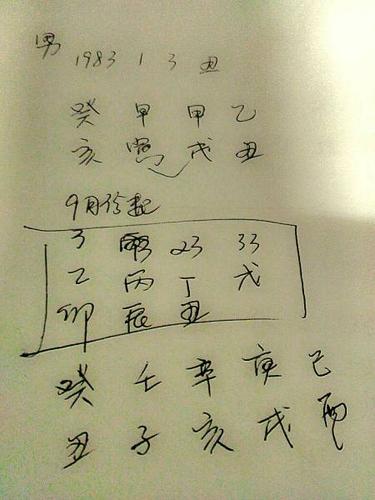 男 1983 1 3 丑
癸 甲 甲 乙
亥 寅 戌 丑
9月份起
3 23 33
乙 丙 丁 戊
卯 辰 丑
癸 壬 辛 庚 己
丑 子 亥 戌 酉